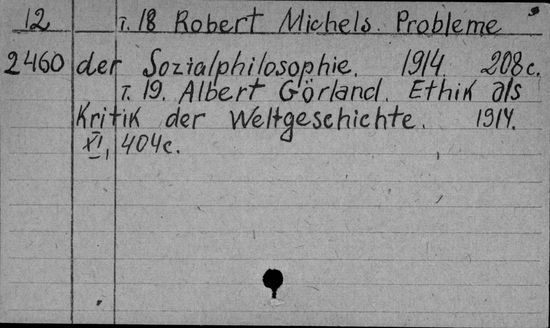 12 т. 18 Robert Michels. Probleme
2460 der Sozialphilosophie. 1914. 208 с.
т. 19. Albert Görland. Ethik als
Kritik der Weltgeschichte. 1914.
XI, 404 с.